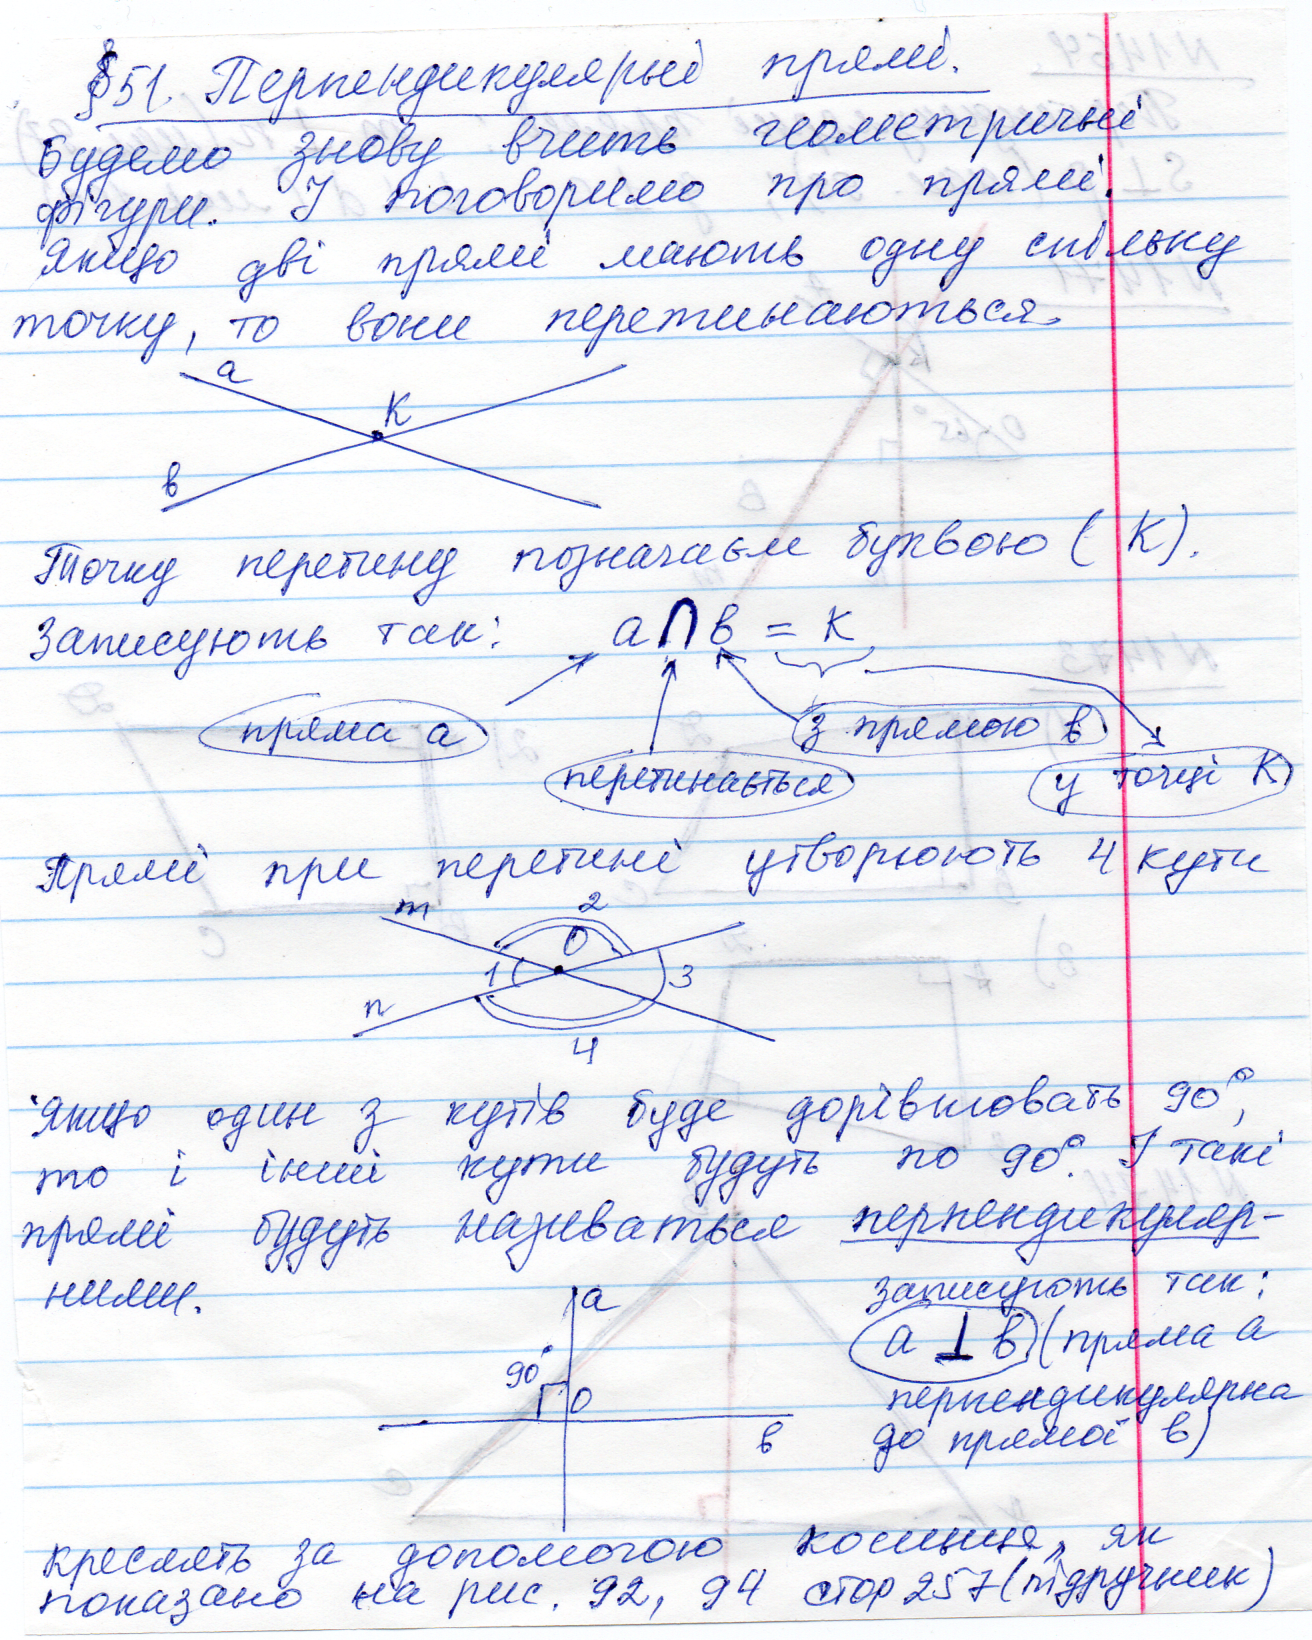 §51. Перпендикулярні прямі.
Будемо знову вчить геометричні
фігури. І поговоримо про прямі.
Якщо дві прямі мають одну спільну
точку, то вони перетинаються.
а
К
в
Точку перетину позначаєм буквою (К).
Записують так: а∩в = К
пряма а
з прямою в
перетинається
у точці К
Прямі при перетині утворюють 4 кути
m
2
О
1
3
n
4
Якщо один з кутів буде дорівнювать 90°,
то і інші кути будуть по 90°. І такі
прямі будуть називаться перпендикуляр-
ними.
записують так:
а
а ⊥ в (пряма а
90°
О
перпендикулярна
в
до прямої в)
креслять за допомогою косинця, як
показано на рис. 92, 94 стор 257 (підручник)